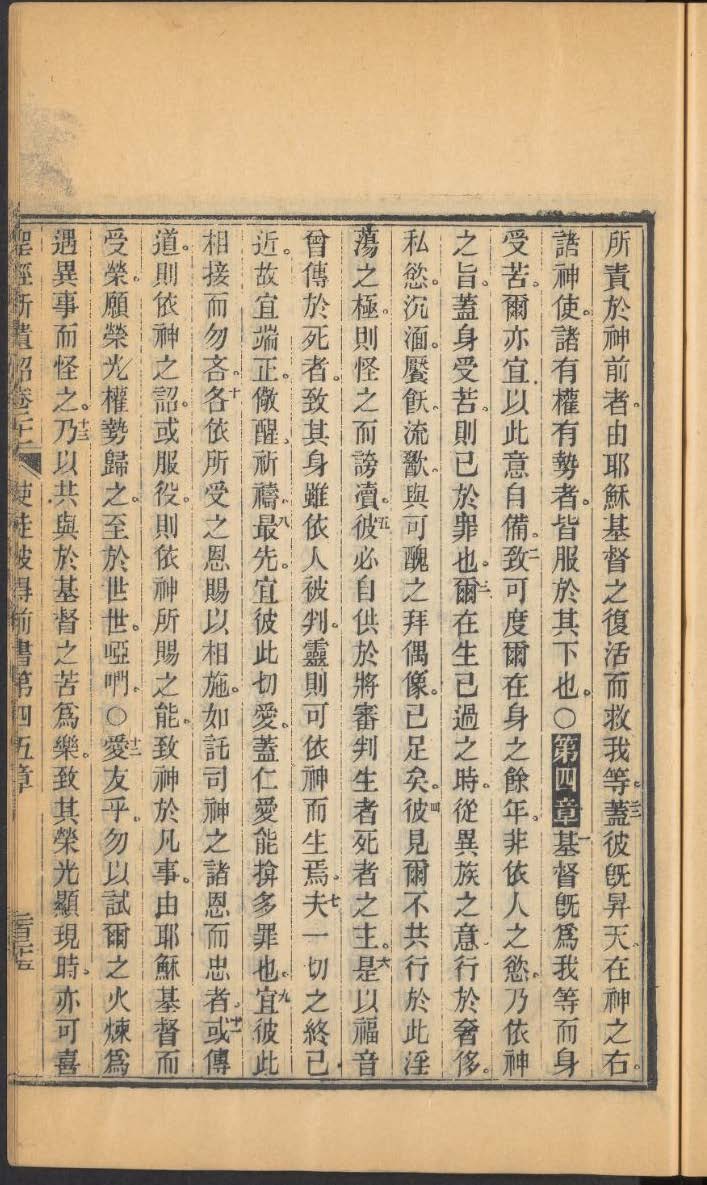 所責於神前者。由耶穌基督之復活而救我等。三蓋彼旣昇天在神之右。
諸神使。諸有權有勢者。皆服於其下也。〇第四章一基督旣爲我等而身
受苦。爾亦宜以此意自備。二致可度爾在身之餘年。非依人之慾。乃依神
之旨。蓋身受苦。則已於罪也。三爾在生已過之時。從異族之意行於奢侈。
私慾。沉湎。饜飫。流歠。與可醜之拜偶像。已足矣。四彼見爾不共行於此淫
蕩之極。則怪之而謗瀆。五彼必自供於將審判生者死者之主。六是以福音
曾傳於死者。致其身雖依人被判。靈則可依神而生焉。七夫一切之終已
近。故宜端正。儆醒祈禱。八最先。宜彼此切愛。蓋仁愛能揜多罪也。九宜彼此
相接而勿吝。十各依所受之恩賜以相施。如託司神之諸恩而忠者。十一或傳
道。則依神之詔。或服役。則依神所賜之能。致神於凡事。由耶穌基督而
受榮。願榮光權勢歸之。至於世世。啞吶。〇十二愛友乎。勿以試爾之火煉爲
遇異事而怪之。十三乃以共與於基督之苦爲樂。致其榮光顯現時。亦可喜
使徒彼得前書第四五章